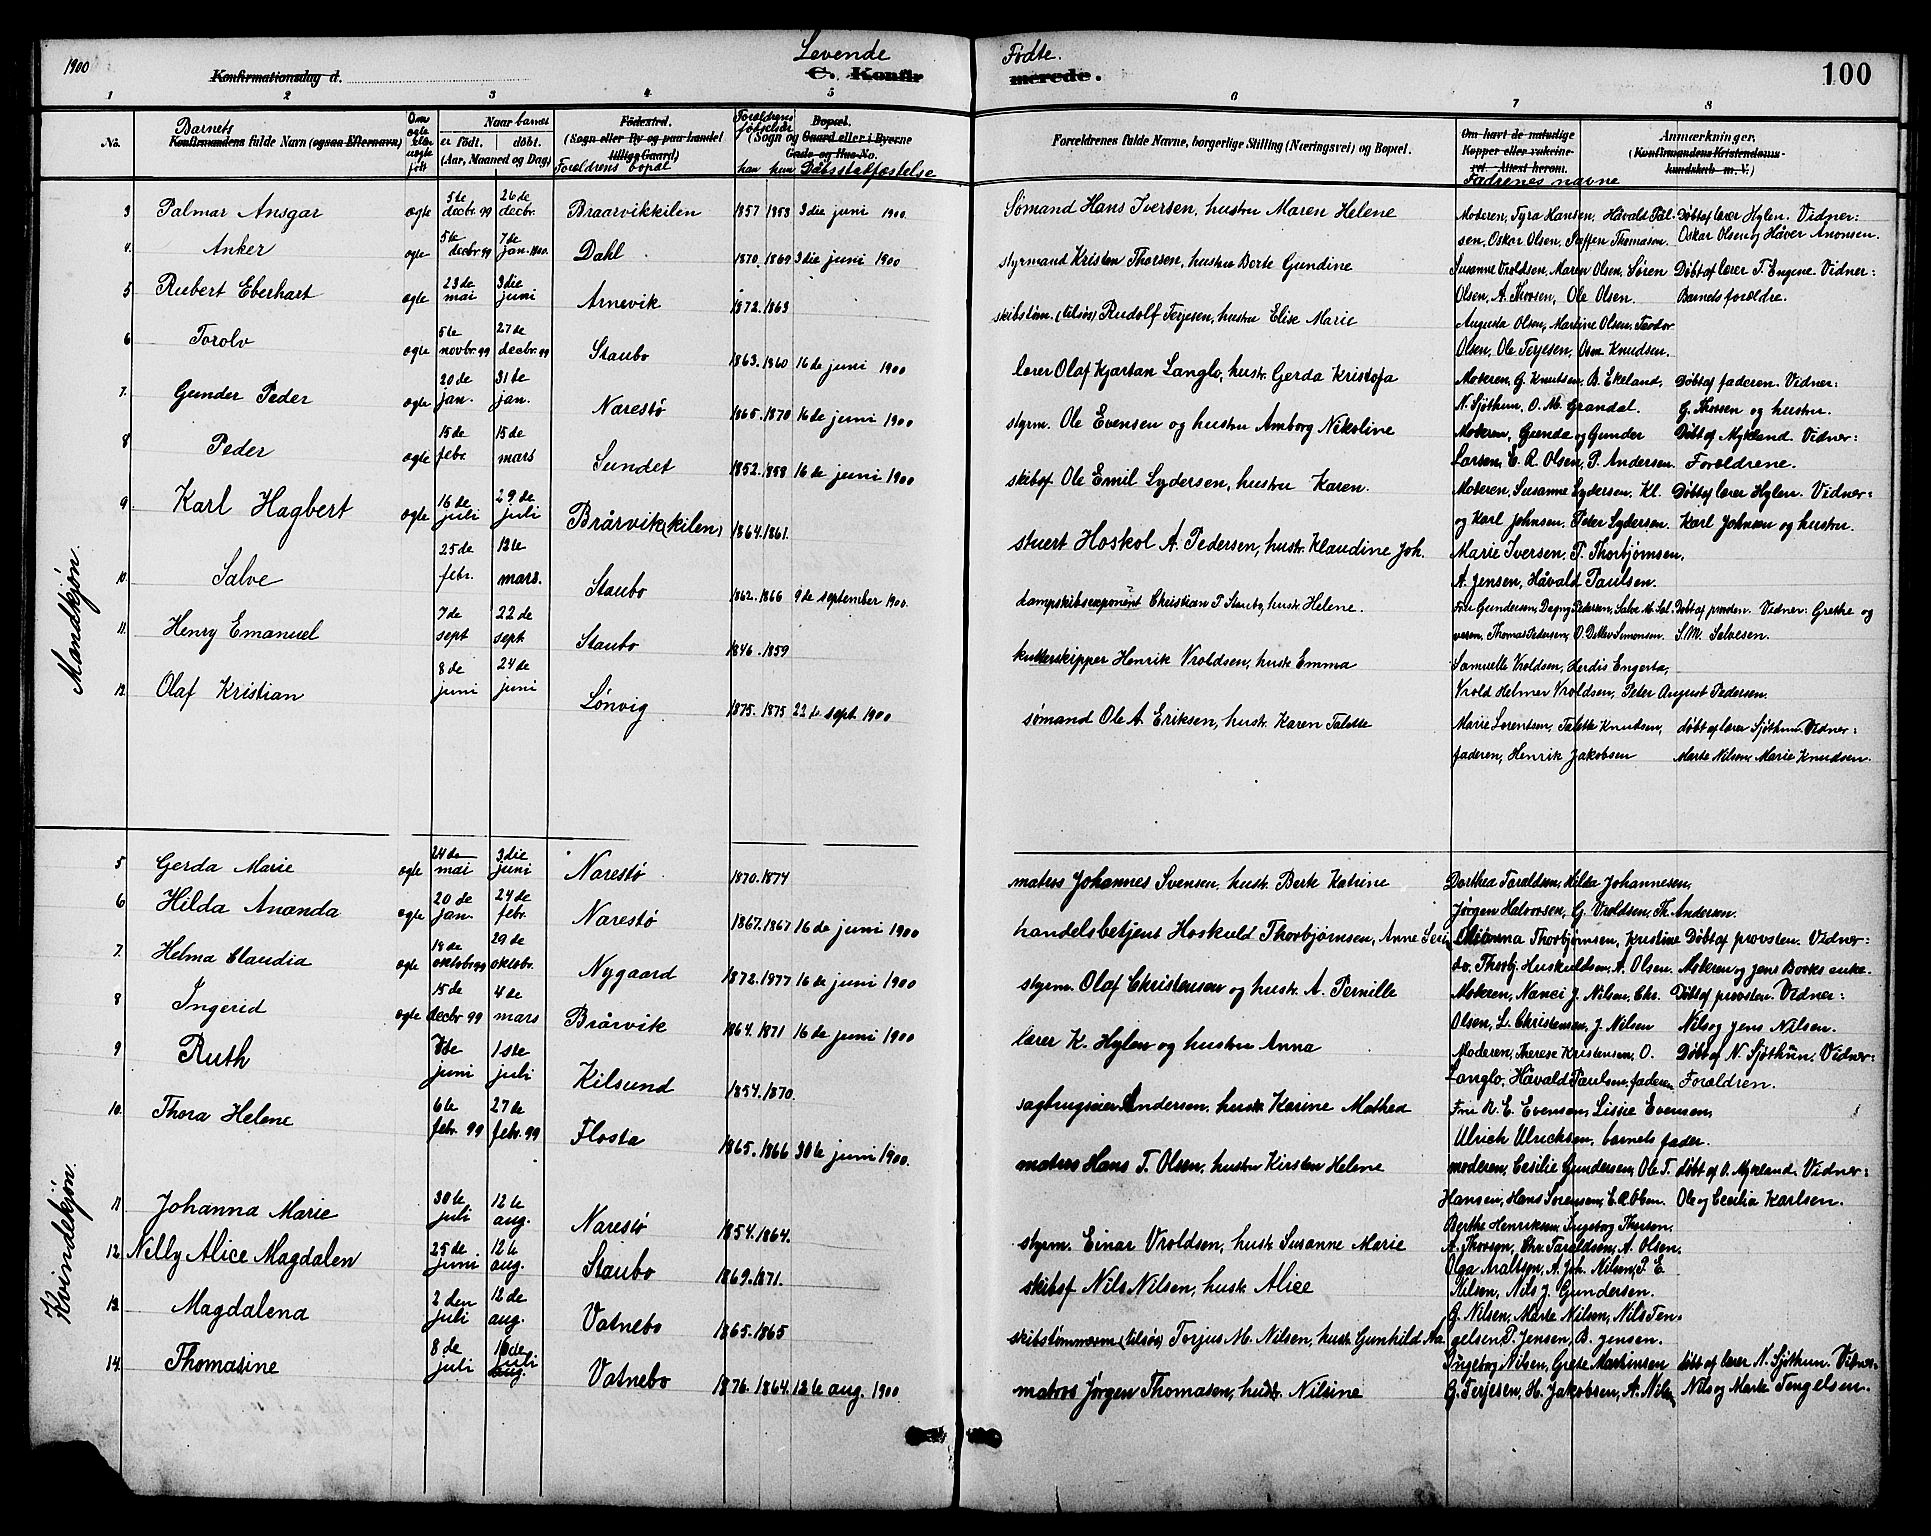 1900
Levende
Fødte.
Konfirmationsdag d.
C. Konfir
merede.
100
1 2 3 4 5 6 7 8
No.
Barnets
Konfirmandens fulde Navn (ogsaa Efternavn)
Om ægte eller uægte født
Naar barnet
er født. døbt.
(Aar, Maaned og Dag)
Fødested.
(Sogn eller By og paa Landet
tillige Gaard)
Forældrens bopæl
Forældrenes fødselsår
han hun
Bopæl.
(Sogn og Gaard eller i Byerne
Gade og Hus-No.
Dåbsstadfæstelse
Forældrenes fulde Navne, borgerlige Stilling (Næringsvei) og Bopæl.
Om havt de naturlige
Kopper eller vaksine-
ret. Attest herom.
Fadrenes navne
Anmærkninger,
(Konfirmandens Kristendoms-
kundskab m. V.)
Mandkjøn.
3 Palmar Ansgar ægte 5te decbr. 99 26de decbr. Braarvikkilen 1857 1858 3die juni 1900 Sømand Hans Iversen, hustru Maren Helene Moderen, Tyra Hansen, Håvald Pål- Døbt af lærer Hylen. Vidner:
sen, Oskar Olsen, Staffen Thomasen. Oskar Olsen og Håver Anonsen.
4. Anker ægte 5te decbr. 99 7de jan. 1900. Dahl 1870. 1869 3die juni 1900 styrmand Kristen Thorsen, hustru Borte Gundine Susanne Vroldsen, Maren Olsen, Søren Døbt af lærer T. Eugene. Vidner:
Olsen, A. Thorsen, Ole Olsen. Barnets forældre.
5 Rubert Eberhart ægte 23de mai 3die juni Arnevik 1872. 1863 skibstøm. (tilsøs) Rudolf Terjesen, hustru Elise Marie Augusta Olsen, Martine Olsen, Teodor
Olsen, Ole Terjesen, Osm Knudsen.
6 Torolv ægte 5te novbr. 99 27de decbr. 99 Staubo 1863. 1860 16de juni 1900 lærer Olaf Kjartan Langlo, hustr. Gerda Kristofa Moderen, G. Knutsen, B. Ekeland, Døbt af faderen. Vidner:
N. Sjøthun, O. M. Grandal. G. Thorsen og hustru.
7. Gunder Peder ægte 20de jan. 31te jan. Narestø 1865. 1870 16de juni 1900 styrm. Ole Evensen og hustru Amborg Nikoline Moderen, Gunda og Gunder Døbt af Mykland. Vidner:
Larsen, E. A. Olsen, P. Andersen. Forældrene.
8 Peder ægte 15de febr. 15de mars Sundet 1852. 1858 16de juni 1900 skibsf Ole Emil Lydersen, hustru Karen. Moderen, Susanne Lydersen, Kl. Døbt af lærer Hylen. Vidner-
og Karl Johnsen, Peter Lydersen. Karl Johnsen og hustru.
9. Karl Hagbert ægte 16de juli 29de juli Brårvik(kilen) 1864. 1861. stuert Hoskol A. Pedersen, hustr. Klaudine Joh. Marie Iversen, P. Thorbjørnsen,
A. Jensen, Håvald Paulsen.
10. Salve 25de febr. 13de mars. Staubo 1862. 1866 9de september 1900. dampskibsexponent Christian P. Staubo, hustr. Helene. Fru Gundersen, Dagny Pedersen, Salve M. Sal- Døbt af prosten. Vidner: Grethe og
vesen, Thomas Pedersen, O. Detlev Simonsen. S. M. Salvesen.
11. Henry Emanuel 7de sept 22de sept Staubo 1846. 1859 kutterskipper Henrik Vroldsen, hustr Emma Samuelle Vroldsen, Herdis Engerta,
Vrold Helmer Vroldsen, Peter August Pedersen.
12. Olaf Kristian 8de juni 24de juni Lønvig 1875. 1875 22de sept 1900 sømand Ole A. Eriksen, hustr. Karen Talette Marie Lorentsen, Talette Knudsen, døbt af lærer Sjøthun. Vidner:
faderen, Henrik Jakobsen Marte Nilsen, Marie Knudsen.
Kvindekjøn.
5 Gerda Marie ægte 24de mai 3die juni Narestø 1870. 1874 matros Johannes Svensen, hustr. Berte Katrine Dorthea Taraldsen, Hilda Johannesen,
Jørgen Halvorsen, G. Vroldsen, Th. Andersen.
6 Hilda Ananda ægte 20de jan. 24de febr. Narestø 1867. 1867 16de juni 1900 handelsbetjent Hoskuld Thorbjørnsen, Anne Serine Thorbjørnsen, Kristine Døbt af provsten. Vidner-
do. Thorbj. Huskuldsen, A. Olsen. Moderen og Jens Books enke.
7. Helma Claudia ægte 18de oktobr 99 29de oktobr. Nygaard 1872. 1877 16de juni 1900 styrm. Olaf Christensen og hustr. A. Pernille Moderen, Nanci J. Nilsen, Chr. Døbt af provsten. Vidner:
Olsen, L. Christensen, J. Nilsen Nils og Jens Nilsen.
8 Ingerid ægte 15de decbr 99 4de mars Brårvik 1864. 1871 16de juni 1900 lærer K. Hylen og hustru Anna Moderen, Therese Kristensen, O. Døbt af N. Sjøthun. Vidner:
Langlo, Håvald Paulsen, faderen Forældren.
9 Ruth 7de juni 1ste juli Kilsund 1854. 1870. sagbrugseier Andersen, hustr Karine Mathea Fru R. E. Evensen, Lissie Evensen,
Ulrich Ulricksen, barnets fader.
10. Thora Helene 6te febr. 99 27de febr. 99 Flosta 1865. 1866 30te juni 1900. matros Hans T. Olsen, hustru Kirsten Helene moderen, Cesilie Gundersen, Ole T. døbt af O. Mykland. Vidner-
Hansen, Hans Sørensen, E. A. Olsen. Ole og Cecilia Karlsen.
11 Johanna Marie 30te juli 12te aug. Narestø 1854. 1864. styrm. Einar Vroldsen, hustr Susanne Marie Berthe Henriksen, Ingeborg Thorson,
A. Thorsen, Chr. Taraldsen, A. Olsen.
12. Nelly Alice Magdalen 25de juni 12te aug. Staubo 1869. 1871. skibsf Nils Nilsen, hustr. Alice Olga Araltsen, A. Joh. Nilsen, P. E.
Nilsen, Nils J. Gundersen.
13. Magdalena 2den juli 12de aug. Vatnebo 1865. 1865 skibstømmerm (tilsøs) Torjus M. Nilsen, hustr. Gunhild Aa. G. Nilsen, Marte Nilsen, Nils Ten-
gelsen, P. Jensen, B. Jensen.
14. Thomasine 8de juli 16de juli aug. Vatnebo 1876. 1864. 12te aug. 1900 matros Jørgen Thomasen, hustr. Nilsine Ingeborg Nilsen, Grete Martinsen døbt af lærer N. Sjøthun. Vidner-
G. Terjesen, H. Jakobsen, A. Nilsen Nils og Marte Tengelsen.